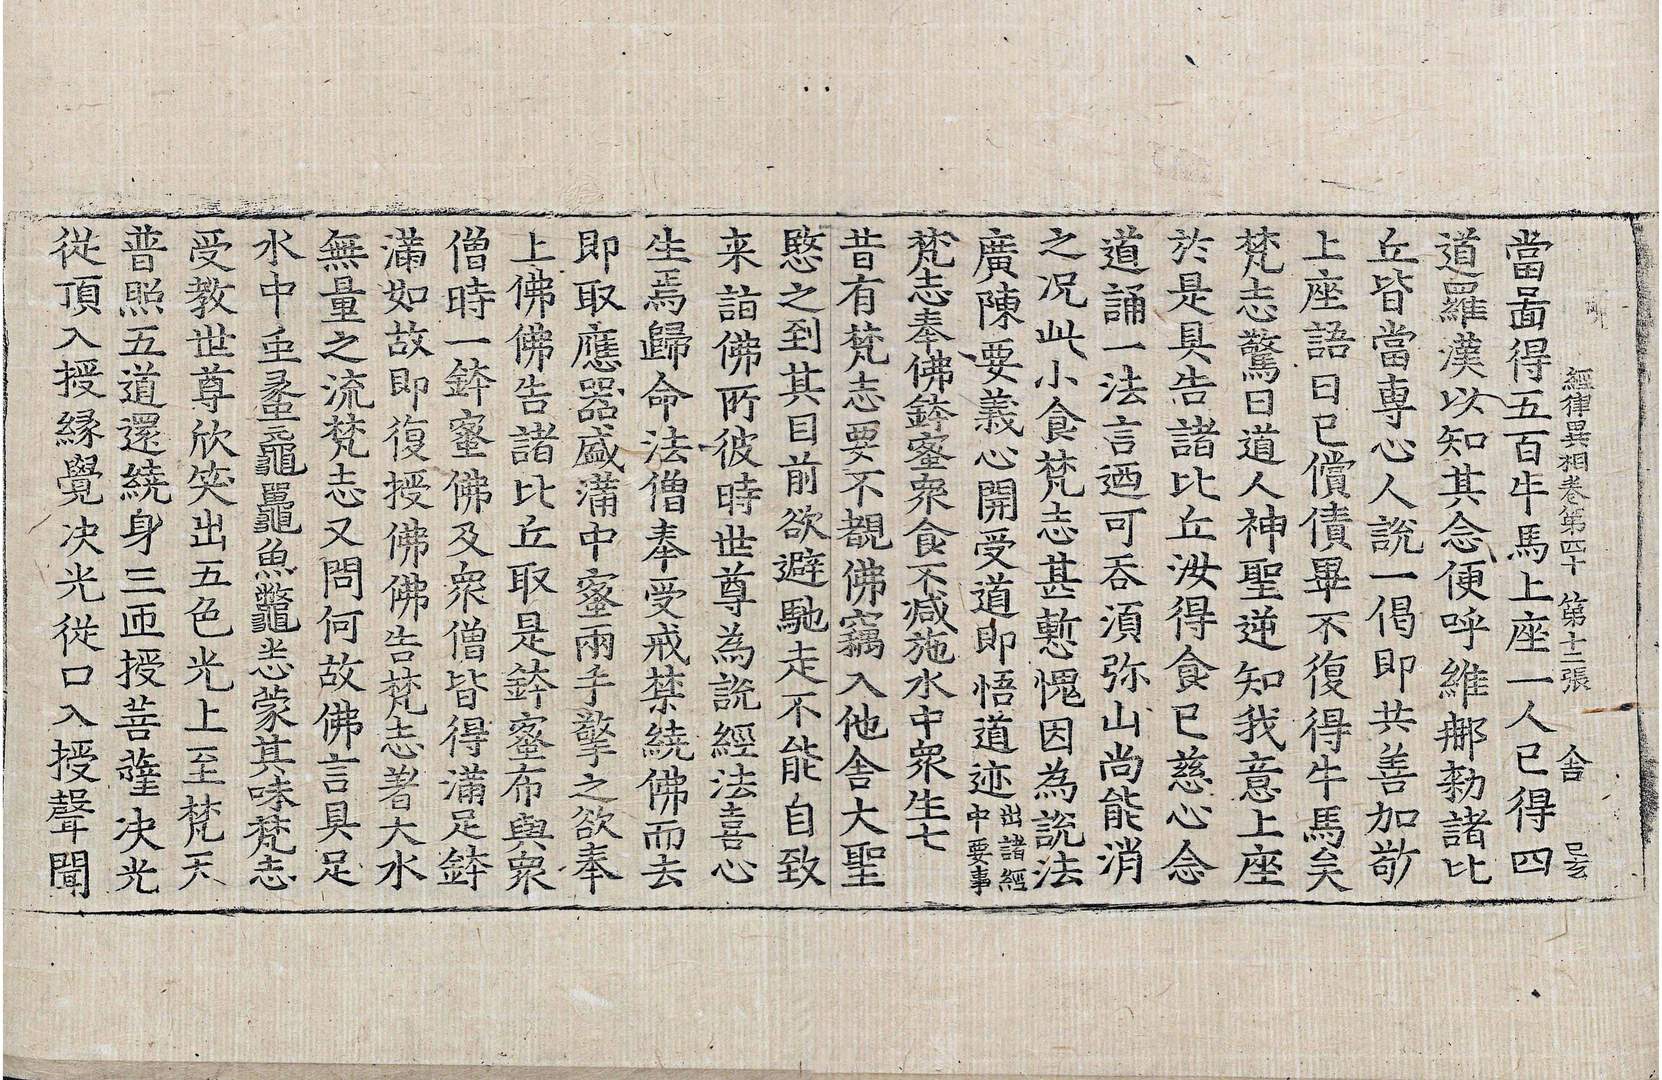 經律異相卷第四十 第十二張 舍 㠯玄
當啚得五百牛馬上座一人已得四
道羅漢以知其念便呼維那勑諸比
丘皆當專心人說一偈即共善加敬
上座語曰已償債畢不復得牛馬矣
梵志驚曰道人神聖逆知我意上座
於是具告諸比丘汝得食已慈心念
道誦一法言迺可吞湏弥山尚能消
之况此小食梵志甚慙愧因為說法
廣陳要義心開受道即悟道迹出諸經中要事
梵志奉佛鉢蜜衆食不減施水中衆生七
昔有梵志要不覩佛竊入他舍大聖
愍之到其目前欲避馳走不能自致
来詣佛所彼時世尊為說經法喜心
生焉歸命法僧奉受戒禁繞佛而去
即取應器盛滿中蜜兩手擎之欲奉
上佛佛告諸比丘取是鉢蜜布與衆
僧時一鉢蜜佛及衆僧皆得滿足鉢
滿如故即復授佛佛告梵志著大水
無量之流梵志又問何故佛言具足
水中虫蠡黿鼉魚鼈悉蒙其味梵志
受教世尊欣笑出五色光上至梵天
普照五道還繞身三匝授菩薩决光
從頂入授緣覺决光從口入授聲聞